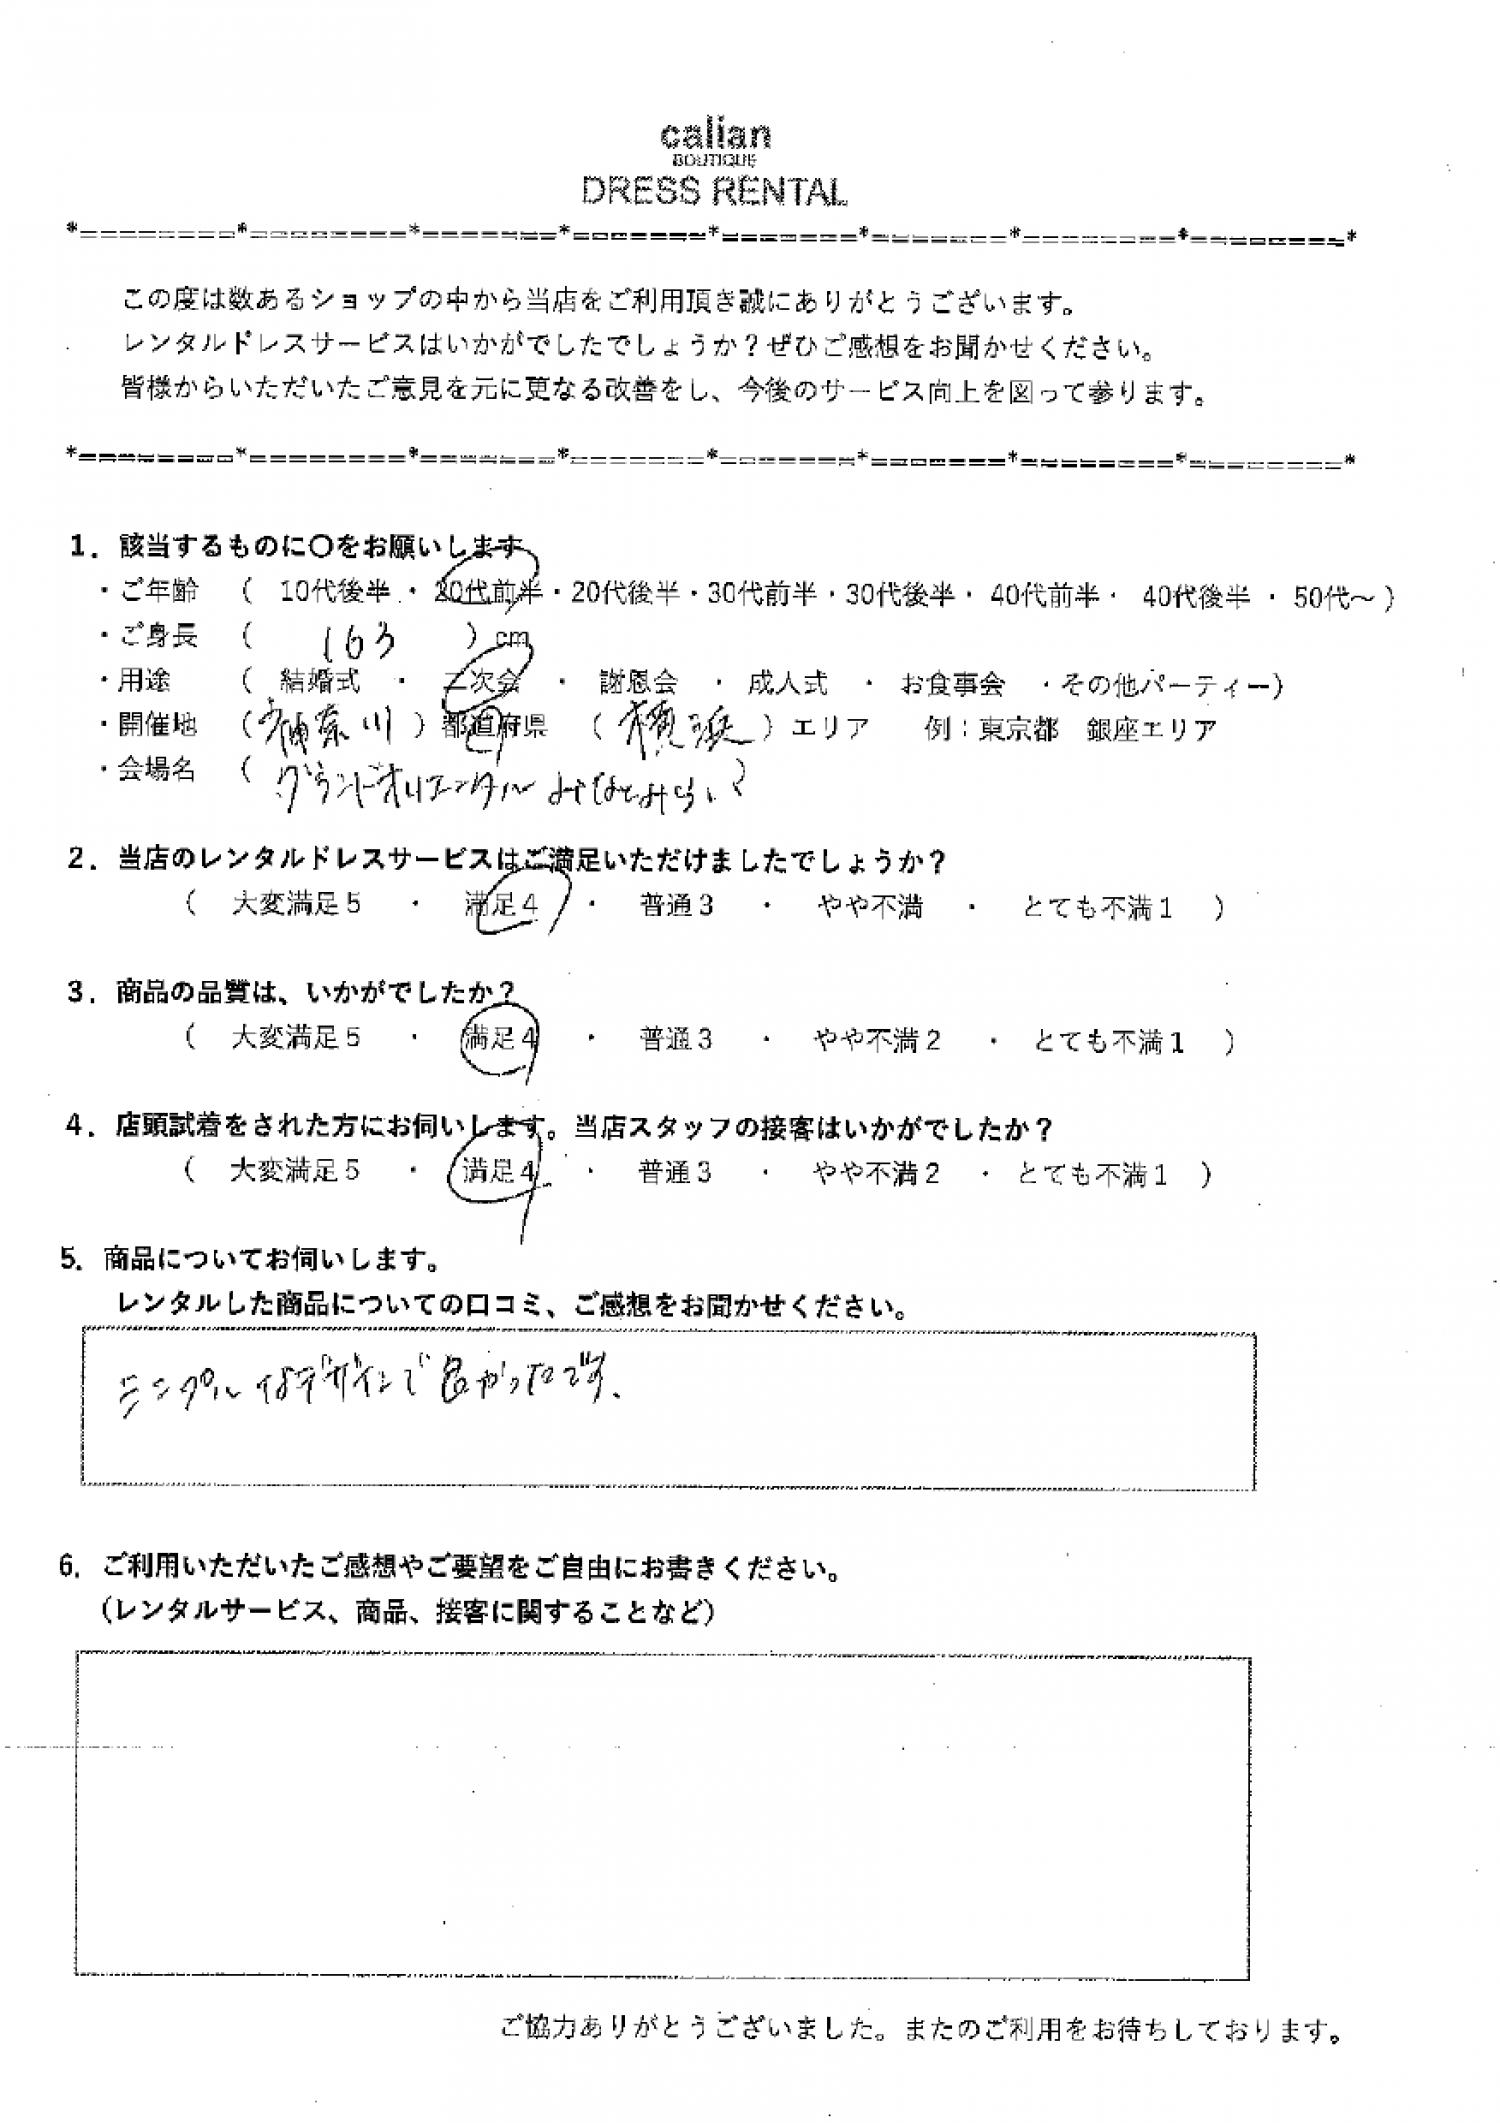 calian
BOUTIQUE
DRESS RENTAL
*=========*=========*========*========*========*========*=========*=========*
この度は数あるショップの中から当店をご利用頂き誠にありがとうございます。
レンタルドレスサービスはいかがでしたでしょうか？ぜひご感想をお聞かせください。
皆様からいただいたご意見を元に更なる改善をし、今後のサービス向上を図って参ります。
*=========*=========*========*========*========*========*=========*=========*
1．該当するものに〇をお願いします
・ご年齢 （ 10代後半 ・ 20代前半・20代後半・30代前半・30代後半・ 40代前半・ 40代後半 ・ 50代～）
・ご身長 （ 163 ）cm
・用途 （ 結婚式 ・ 二次会 ・ 謝恩会 ・ 成人式 ・ お食事会 ・その他パーティー）
・開催地 （神奈川）都道府県 （横浜）エリア 例：東京都 銀座エリア
・会場名 （グランドオリエンタルみなとみらい）
2．当店のレンタルドレスサービスはご満足いただけましたでしょうか？
（ 大変満足５ ・ 満足４ ・ 普通３ ・ やや不満 ・ とても不満１ ）
3．商品の品質は、いかがでしたか？
（ 大変満足５ ・ 満足４ ・ 普通３ ・ やや不満２ ・ とても不満１ ）
4．店頭試着をされた方にお伺いします。当店スタッフの接客はいかがでしたか？
（ 大変満足５ ・ 満足４ ・ 普通３ ・ やや不満２ ・ とても不満１ ）
5．商品についてお伺いします。
レンタルした商品についての口コミ、ご感想をお聞かせください。
シンプルなデザインで良かったです。
6．ご利用いただいたご感想やご要望をご自由にお書きください。
（レンタルサービス、商品、接客に関することなど）
ご協力ありがとうございました。またのご利用をお待ちしております。